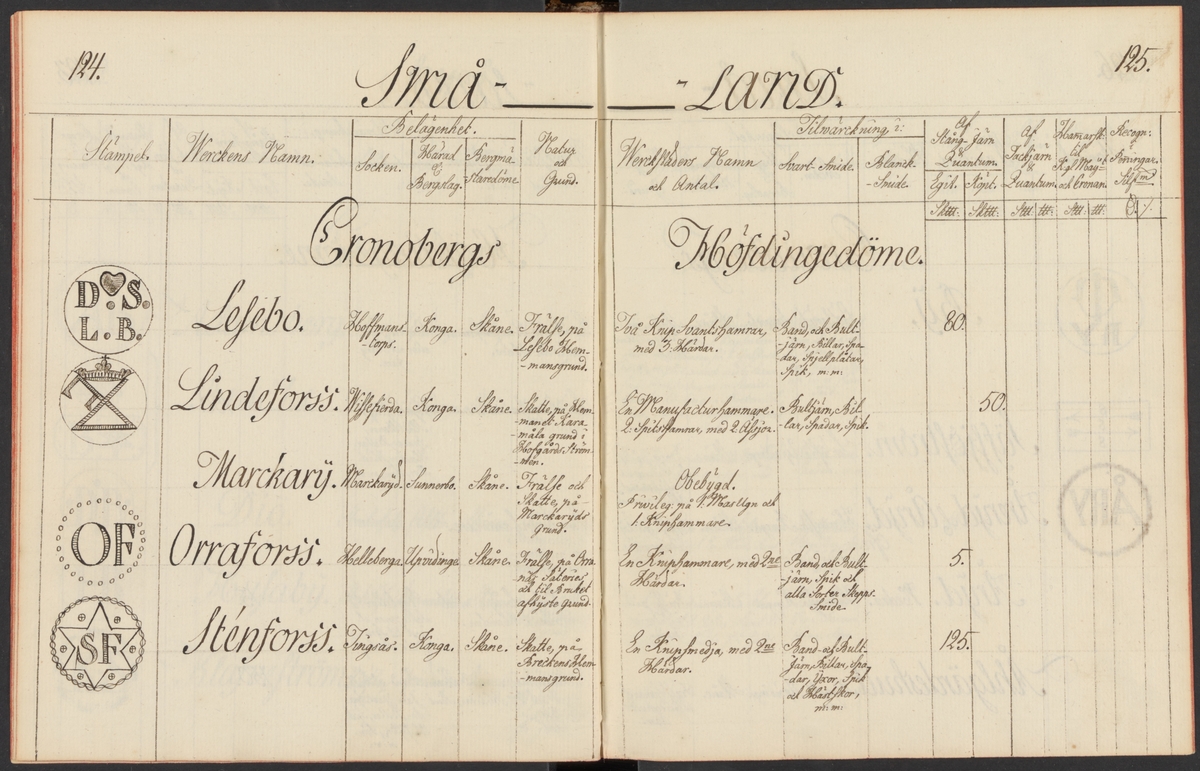 124.
125.
Små- -LAND.
Stämpel.
Werckens Namn.
Belägenhet.
Socken.
Härad
&
Bergslag.
Bergmä-
staredöme
Natur
och
Grund.
Werckstäders Namn
och Antal.
Tilwärckning i:
Svart-Smide.
Blanck-
-Smide.
Af
Stång-Järn
Quantum.
Egit. Köpt.
Af
Tackjärn
Quantum.
Hamarsk.
til
Kgl. Maÿ:t
och Cronan.
Recogn:
Penningar.
Silf:m
Cronobergs Höfdingedöme.
D. S.
L. B.
Lesebo.
Hoffmans-
-torps.
Konga.
Skåne.
Frälse, på
Lesebo Hem-
-mansgrund.
Två Knip Svantshamrar,
med 3. Härdar.
Band, och Bult-
-järn, Billar, Spa-
dar, Spjellplåtar,
Spik, m: m:
80.
Lindeforss.
Wissefierda.
Konga.
Skåne.
Skatte, på Hem-
-manet Kara-
-måla grund i
Hofgårds Ström-
En Manufacturhammare.
2: Spitshamrar, med 2 Ässjor.
Bultjern, Bil-
lar, Spadar, Spik.
50.
Marckarÿ.
Marckarÿd.
Sunnerbo.
Skåne.
Frälse och
Skatte, på
Marckarÿds
Grund.
Obebÿgd.
Privileg: på 1. Mas Ugn och
1. Kniphammare.
OF
Orraforss.
Helleberga.
Upvidinge
Skåne.
Frälse, på Orra
näs Säteries,
och til Bruket
afhÿste Grund.
En Kniphammare, med 2ne
Härdar.
Band, och Bult-
-järn, Spik och
alla Sorter Skepps
Smide.
5.
SF
Sténforss.
Tingsås.
Konga.
Skåne.
Skatte, på
Breckens Hem-
-mansgrund.
En Knipsmedja, med 2ne
Härdar.
Band- och Bult-
Järn, Billar, Spa-
-dar, Yxor, Spik
och Hästskor,
m: m:
125.